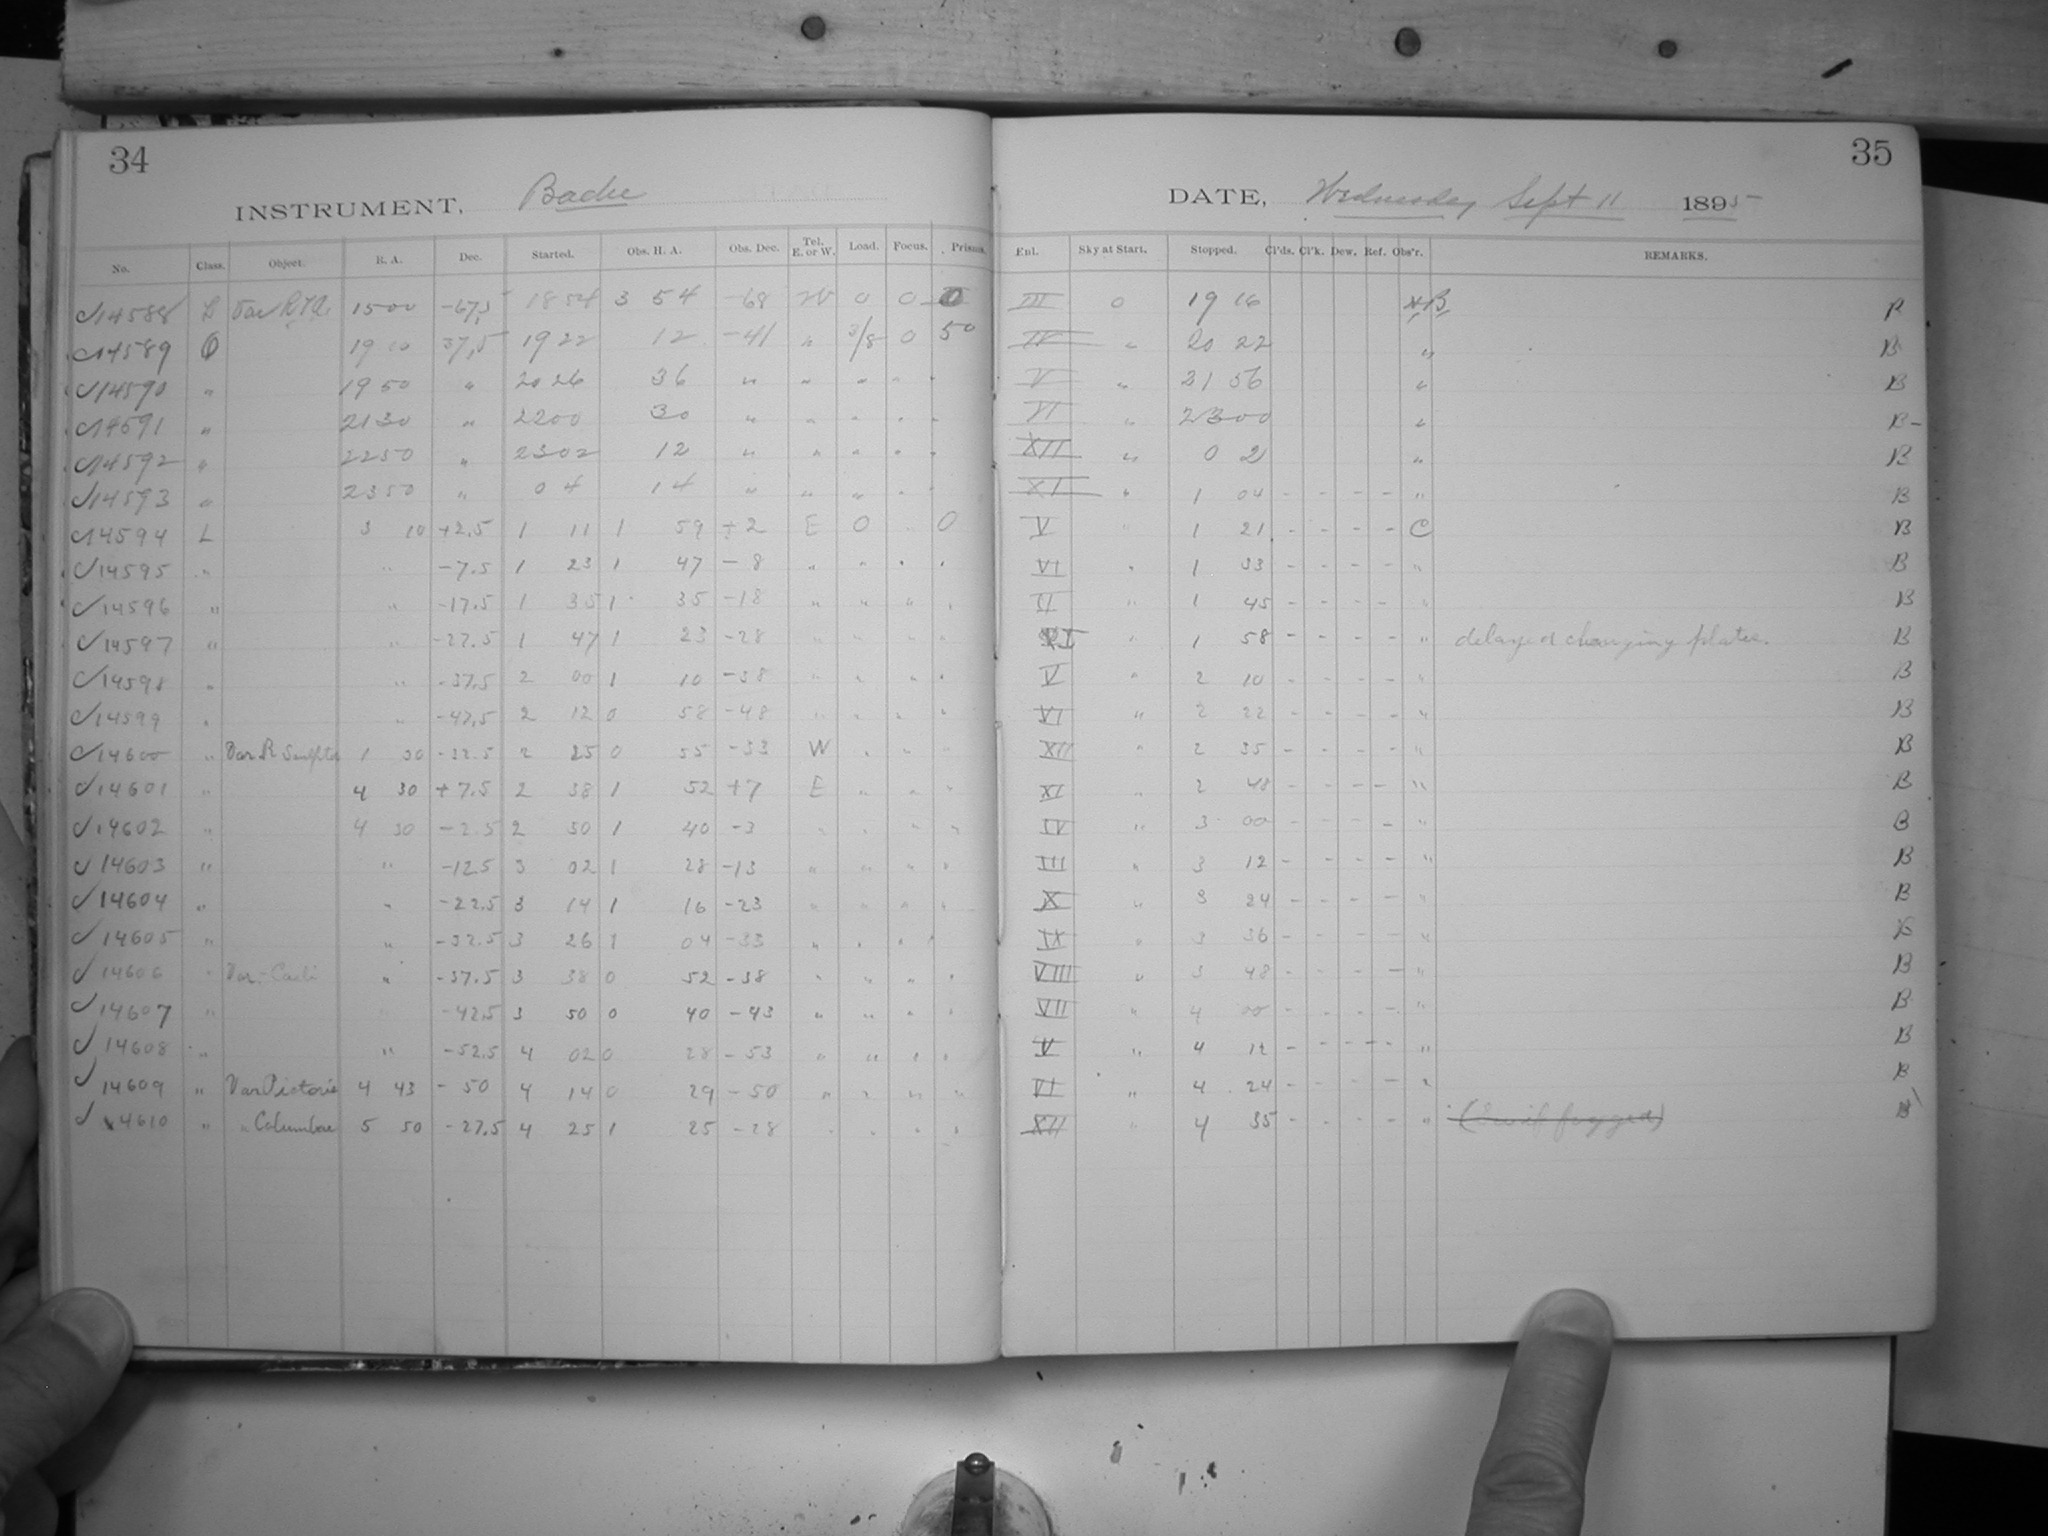 34
35
INSTRUMENT, Bache
DATE, Wednesday Sept 11 1895
No. Class. Object. R. A. Dec. Started. Obs. H. A. Obs. Dec. Tel. E. or W. Load. Focus. Prisms. Enl. Sky at Start. Stopped. Cl'ds. Cl'k. Dew. Ref. Obs'r. REMARKS.
14588 L Var R.T.A. 15 00 -67,5 18 54 3 54 -68 W 0 0 0 III 0 19 16 B
14589 19 10 37,5 19 22 12 -41 " 3/8 0 50 IV " 20 22 " B
14590 " 19 50 " 20 26 36 " " " " " V " 21 56 " B
14591 " 21 30 " 22 00 30 " " " " " VI " 23 00 " B
14592 " 22 50 " 23 02 12 " " " " " XII " 0 2 " B
14593 " 23 50 " 0 4 14 " " " " " XI " 1 04 - - - - " B
14594 L 3 10 +2.5 1 11 1 59 +2 E 0 " 0 V " 1 21 - - - - C B
14595 " " -7.5 1 23 1 47 -8 " " " " VI " 1 33 - - - - " B
14596 " " -17.5 1 35 1 35 -18 " " " " II " 1 45 - - - - " B
14597 " " -27.5 1 47 1 23 -28 " " " " " 1 58 - - - - " delayed changing plates. B
14598 " " -37.5 2 00 1 10 -38 " " " " V " 2 10 - - - - " B
14599 " " -47.5 2 12 0 58 -48 " " " " VI " 2 22 - - - - " B
14600 " Var R Sculptor 1 30 -32.5 2 25 0 55 -33 W " " " XII " 2 35 - - - - " B
14601 " 4 30 +7.5 2 38 1 52 +7 E " " " XI " 2 48 - - - - " B
14602 " 4 30 -2.5 2 50 1 40 -3 " " " " IV " 3 00 - - - - " B
14603 " " -12.5 3 02 1 28 -13 " " " " III " 3 12 - - - - " B
14604 " " -22.5 3 14 1 16 -23 " " " " X " 3 24 - - - - " B
14605 " " -32.5 3 26 1 04 -33 " " " " IX " 3 36 - - - - " B
14606 " Var. Caeli " -37.5 3 38 0 52 -38 " " " " VIII " 3 48 - - - - " B
14607 " " -42.5 3 50 0 40 -43 " " " " VII " 4 00 - - - - " B
14608 " " -52.5 4 02 0 28 -53 " " " " V " 4 12 - - - - " B
14609 " Var Pictoris 4 43 -50 4 14 0 29 -50 " " " " VI " 4 24 - - - - " B
14610 " " Columbae 5 50 -27.5 4 25 1 25 -28 " " " " XII " 4 35 - - - - " fogged) B